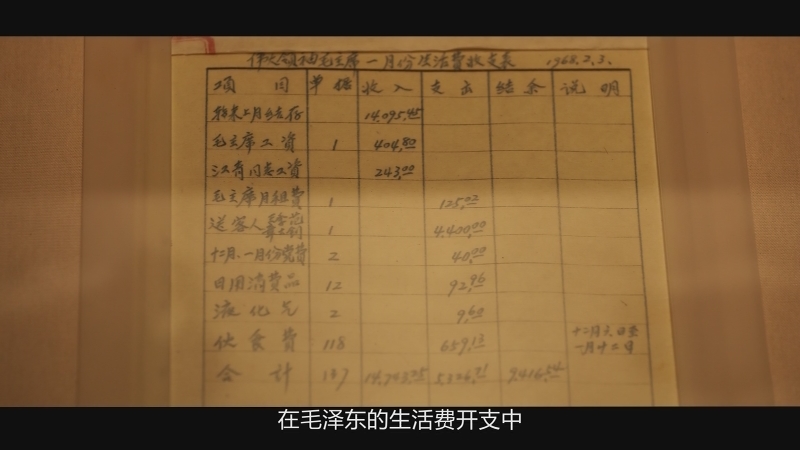 伟大领袖毛主席一月份生活费收支表 1968.2.3.
项目 单据 收入 支出 结余 说明
14,095.45
毛主席工资 1 404.80
江青同志工资 243.00
毛主席月租费 1 125.02
送客人 1 4,400.00
十二月、一月份党费 2 40.00
日用消费品 12 92.96
液化气 2 9.60
伙食费 118 659.13 十二月六日至一月十二日
合计 137 14,743.25 5,326.71 9,416.54
在毛泽东的生活费开支中